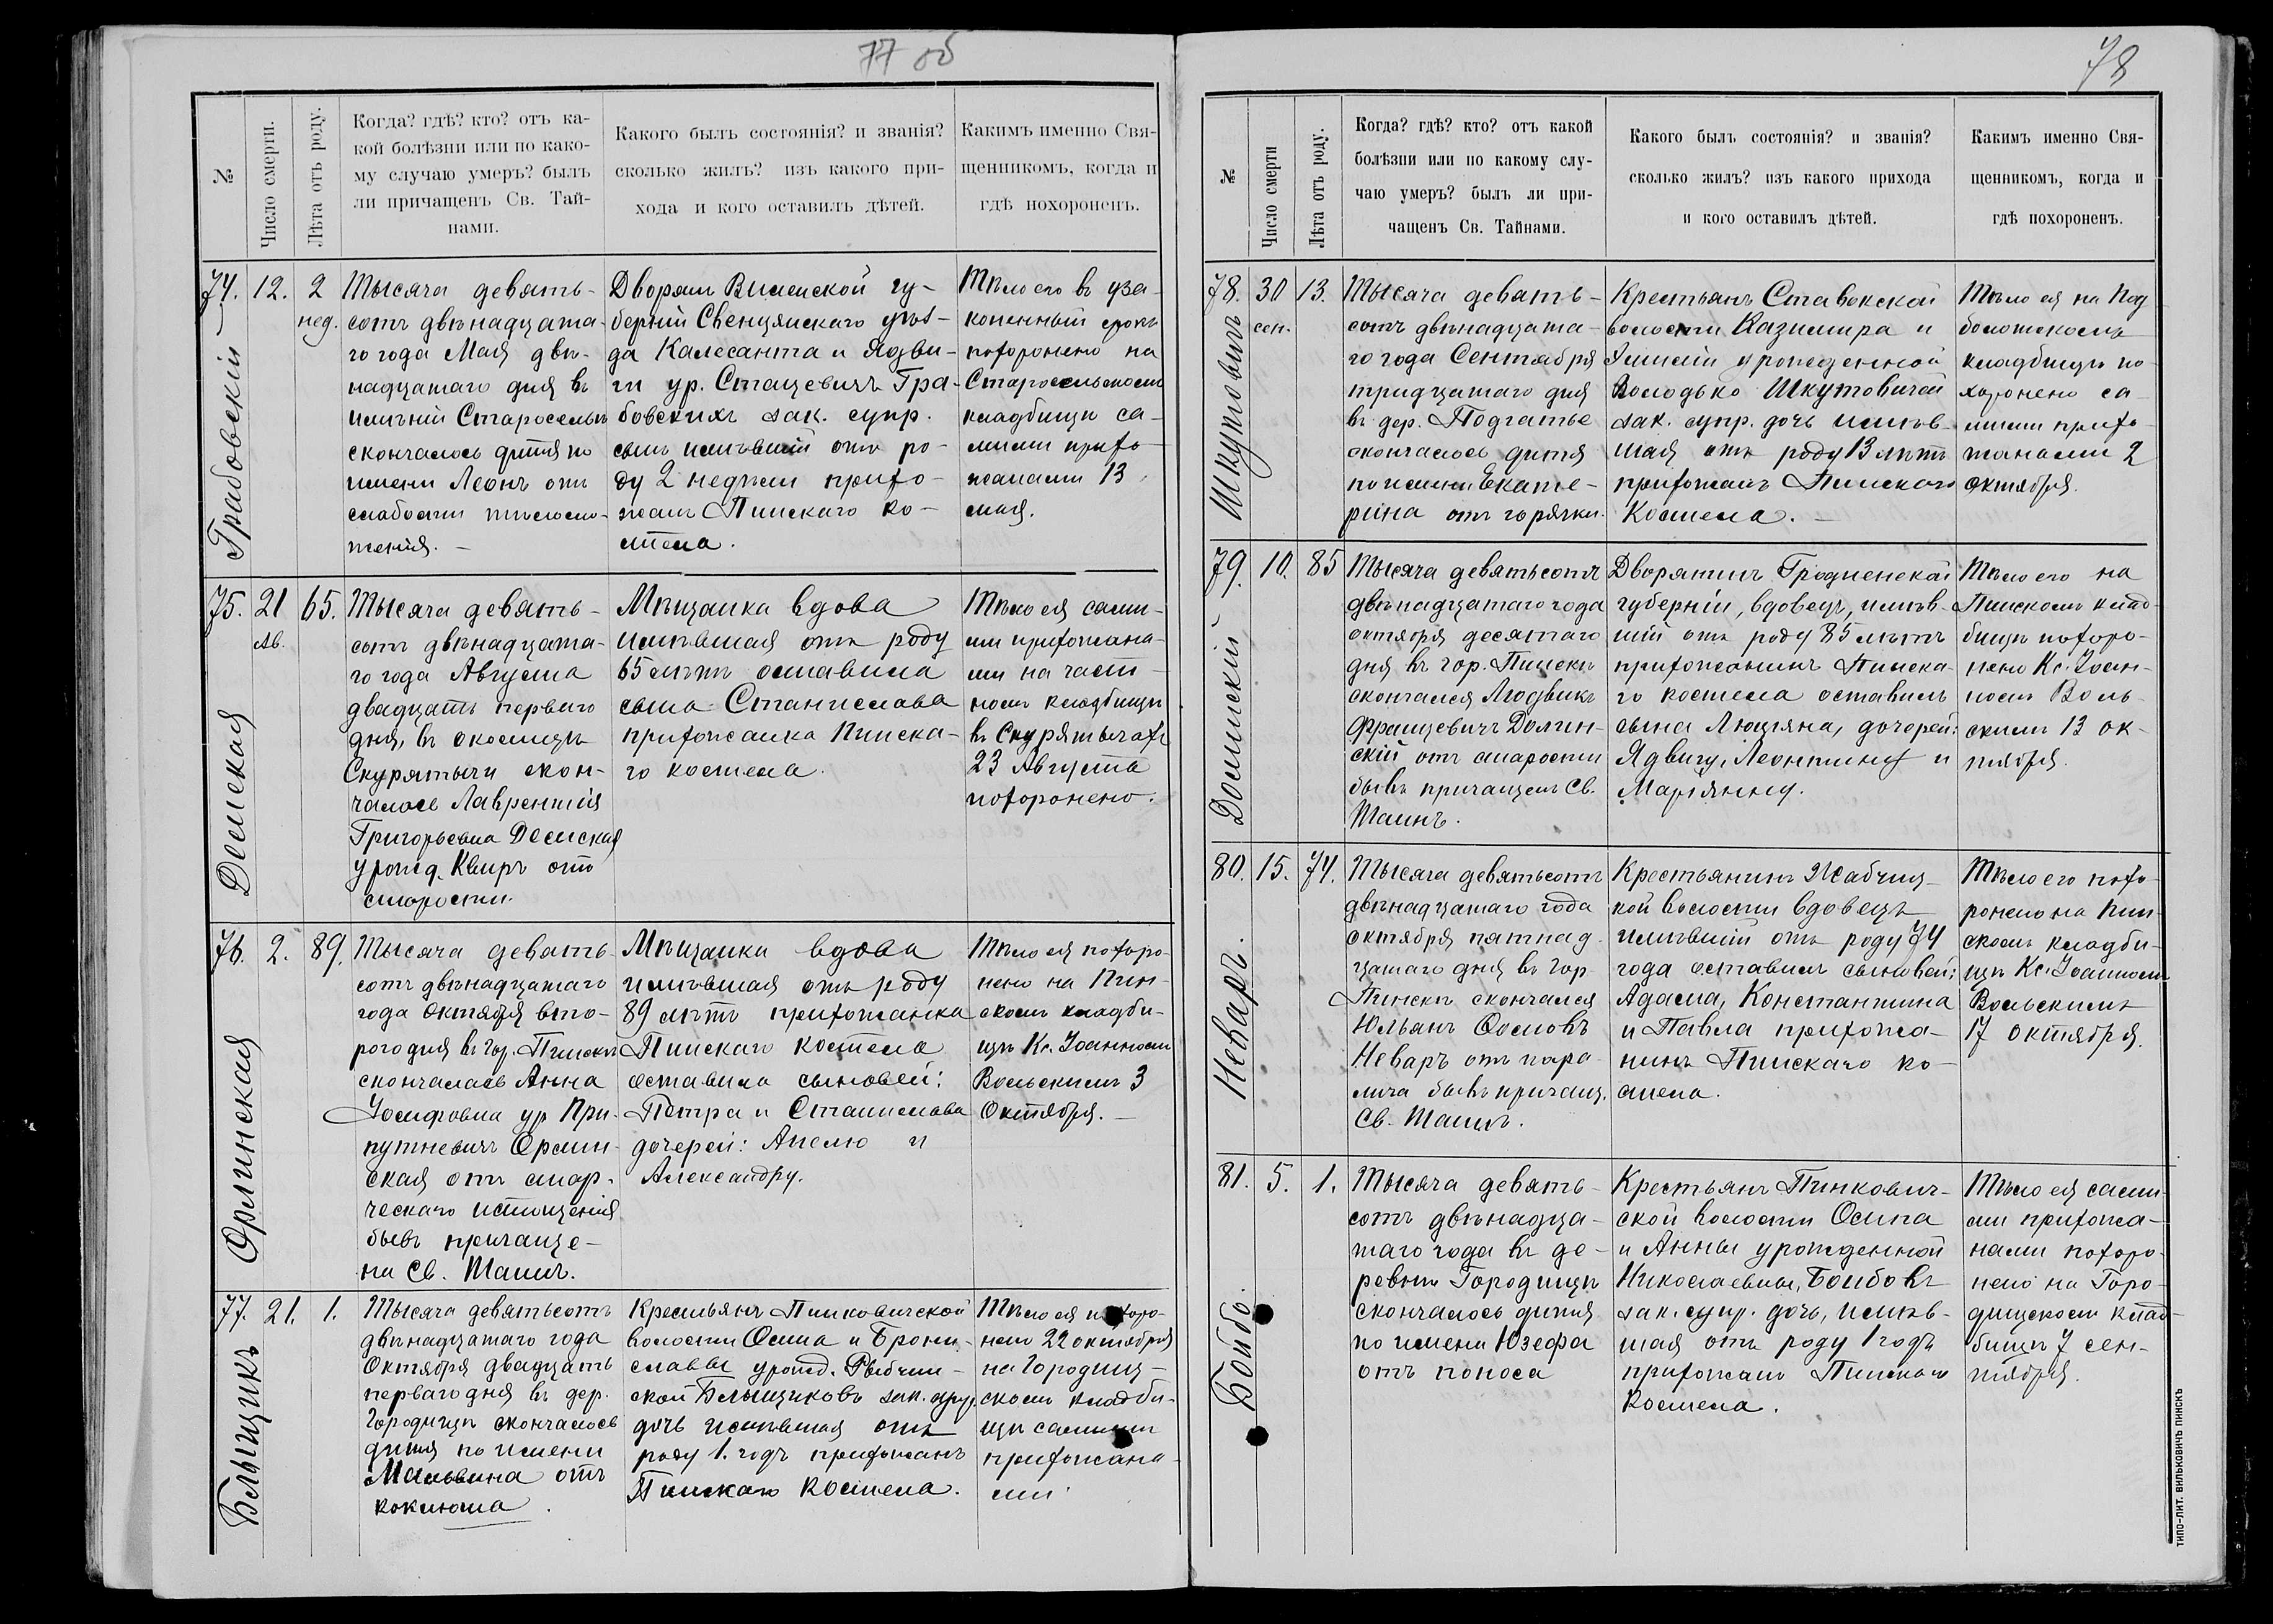 77 об
№
Число смерти.
Лѣта отъ роду.
Когда? гдѣ? кто? отъ ка-
кой болѣзни или по како-
му случаю умеръ? былъ
ли причащенъ Св. Тай-
нами.
Какого былъ состоянія? и званія?
сколько жилъ? изъ какого при-
хода и кого оставилъ дѣтей.
Какимъ именно Свя-
щенникомъ, когда и
гдѣ похороненъ.
74.
Грабовскій
12.
2
нед.
Тысяча девять-
сотъ двѣнадцата-
го года Мая двѣ-
надцатаго дня въ
имѣніи Староселье
скончалось дитя по
имени Леонъ отъ
слабости тѣлосло-
женія. —
Дворян Виленской гу-
берніи Свенцянскаго уѣз-
да Калесанта и Ядви-
ги ур. Стацевичъ Гра-
бовскихъ зак. супр.
сынъ имѣвшій отъ ро-
ду 2 недѣли прихо-
жанъ Пинскаго ко-
стела.
Тѣло его въ уза-
коненный срокъ
похоронено на
Старосельскомъ
кладбищѣ са-
мими прихо-
жанами 13
мая.
75.
Демская
21
Ав.
65.
Тысяча девять-
сотъ двѣнадцата-
го года Августа
двадцать перваго
дня, въ околицѣ
Скурятычи скон-
чалось Лаврентія
Григорьевна Демская
урожд. Квиръ отъ
старости.
Мѣщанка вдова
имѣвшая отъ роду
65 лѣтъ оставила
сына Станислава
прихожанка Пинска-
го костела.
Тѣло ея сами-
ми прихожана-
ми на част-
номъ кладбищѣ
въ Скурятычахъ
23 Августа
похоронено.
76.
Орлинская
2.
89.
Тысяча девять-
сотъ двѣнадцатаго
года Октября вто-
рого дня въ гор. Пинскѣ
скончалась Анна
Іосифовна ур При-
путневичъ Орлин-
ская отъ стар-
ческаго истощенія
бывъ причаще-
на Св. Таинъ.
Мѣщанка вдова
имѣвшая отъ роду
89 лѣтъ прихожанка
Пинскаго костела
оставила сыновей:
Петра и Станислава
дочерей: Анелю и
Александру.
Тѣло ея похоро-
нено на Пин-
скомъ кладби-
щѣ Кс. Іоанномъ
Вольскимъ 3
Октября. —
77.
Блыщикъ
21.
1.
Тысяча девятьсотъ
двѣнадцатаго года
Октября двадцать
перваго дня въ дер.
Городищѣ скончалось
дитя по имени
Мальвина отъ
коклюша.
Крестьянъ Пинковичской
волости Осипа и Брони-
славы урожд. Рыбчин-
ской Блыщиковъ зак. супр.
дочь имѣвшая отъ
роду 1. годъ прихожанъ
Пинскаго костела.
Тѣло ея похоро-
нено 22 октября
на Городищ-
скомъ кладби-
щѣ самими
прихожана-
ми.
78
№
Число смерти
Лѣта отъ роду.
Когда? гдѣ? кто? отъ какой
болѣзни или по какому слу-
чаю умеръ? былъ ли при-
чащенъ Св. Тайнами.
Какого былъ состоянія? и званія?
сколько жилъ? изъ какого прихода
и кого оставилъ дѣтей.
Какимъ именно Свя-
щенникомъ, когда и
гдѣ похороненъ.
78.
Шкутовичъ
30
сен.
13.
Тысяча девять-
сотъ двѣнадцата-
го года Сентября
тридцатаго дня
въ дер. Подгатье
скончалось дитя
по имени Екате-
рина отъ горячки.
Крестьянъ Ставокской
волости Казимира и
Эмиліи урожденной
Володько Шкутовичей
зак. супр. дочь имѣв-
шая отъ роду 13 лѣтъ
прихожанъ Пинскаго
Костела. —
Тѣло ея на Под
болотскомъ
кладбищѣ по-
хоронено са-
мими прихо-
жанами 2
октября.
79.
Долинскій
10.
85
Тысяча девятьсотъ
двѣнадцатаго года
октября десятаго
дня въ гор. Пинскѣ
скончался Людвикъ
Францевичъ Долин-
скій отъ старости
бывъ причащенъ Св.
Таинъ.
Дворянинъ Гродненской
губерніи, вдовецъ, имѣв-
шій отъ роду 85 лѣтъ
прихожанинъ Пинска-
го костела оставилъ
сына Люціяна, дочерей:
Ядвигу, Леонтину и
Маріянну.
Тѣло его на
Пинскомъ клад-
бищѣ похоро-
нено Кс. Іоан-
номъ Воль-
скимъ 13 ок-
тября.
80.
Неваръ.
15.
74.
Тысяча девятьсотъ
двѣнадцатаго года
октября пятнад-
цатаго дня въ гор
Пинскѣ скончался
Юльянъ Осиповъ
Неваръ отъ пара-
лича бывъ причащ.
Св. Таинъ.
Крестьянинъ Жабчиц-
кой волости вдовецъ
имѣвшій отъ роду 74
года оставилъ сыновей:
Адама, Константина
и Павла прихожа-
нинъ Пинскаго ко-
стела.
Тѣло его похо-
ронено на Пин-
скомъ кладби-
щѣ Кс. Іоанномъ
Вольскимъ
17 октября.
81.
Бойбо.
5.
1.
Тысяча девять-
сотъ двѣнадца-
таго года въ де-
ревнѣ Городищѣ
скончалось дитя
по имени Юзефа
отъ поноса
Крестьянъ Пинкович-
ской волости Осипа
и Анны урожденной
Николаевны, Боибовъ
зак. супр. дочь, имѣв-
шая отъ роду 1 годъ
прихожанъ Пинскаго
Костела.
Тѣло ея сами-
ми прихожа-
нами похоро-
нено на Горо-
дищскомъ клад-
бищѣ 7 сен-
тября.
ТИПО-ЛИТ. ВИЛЬКОВИЧЪ ПИНСКЪ